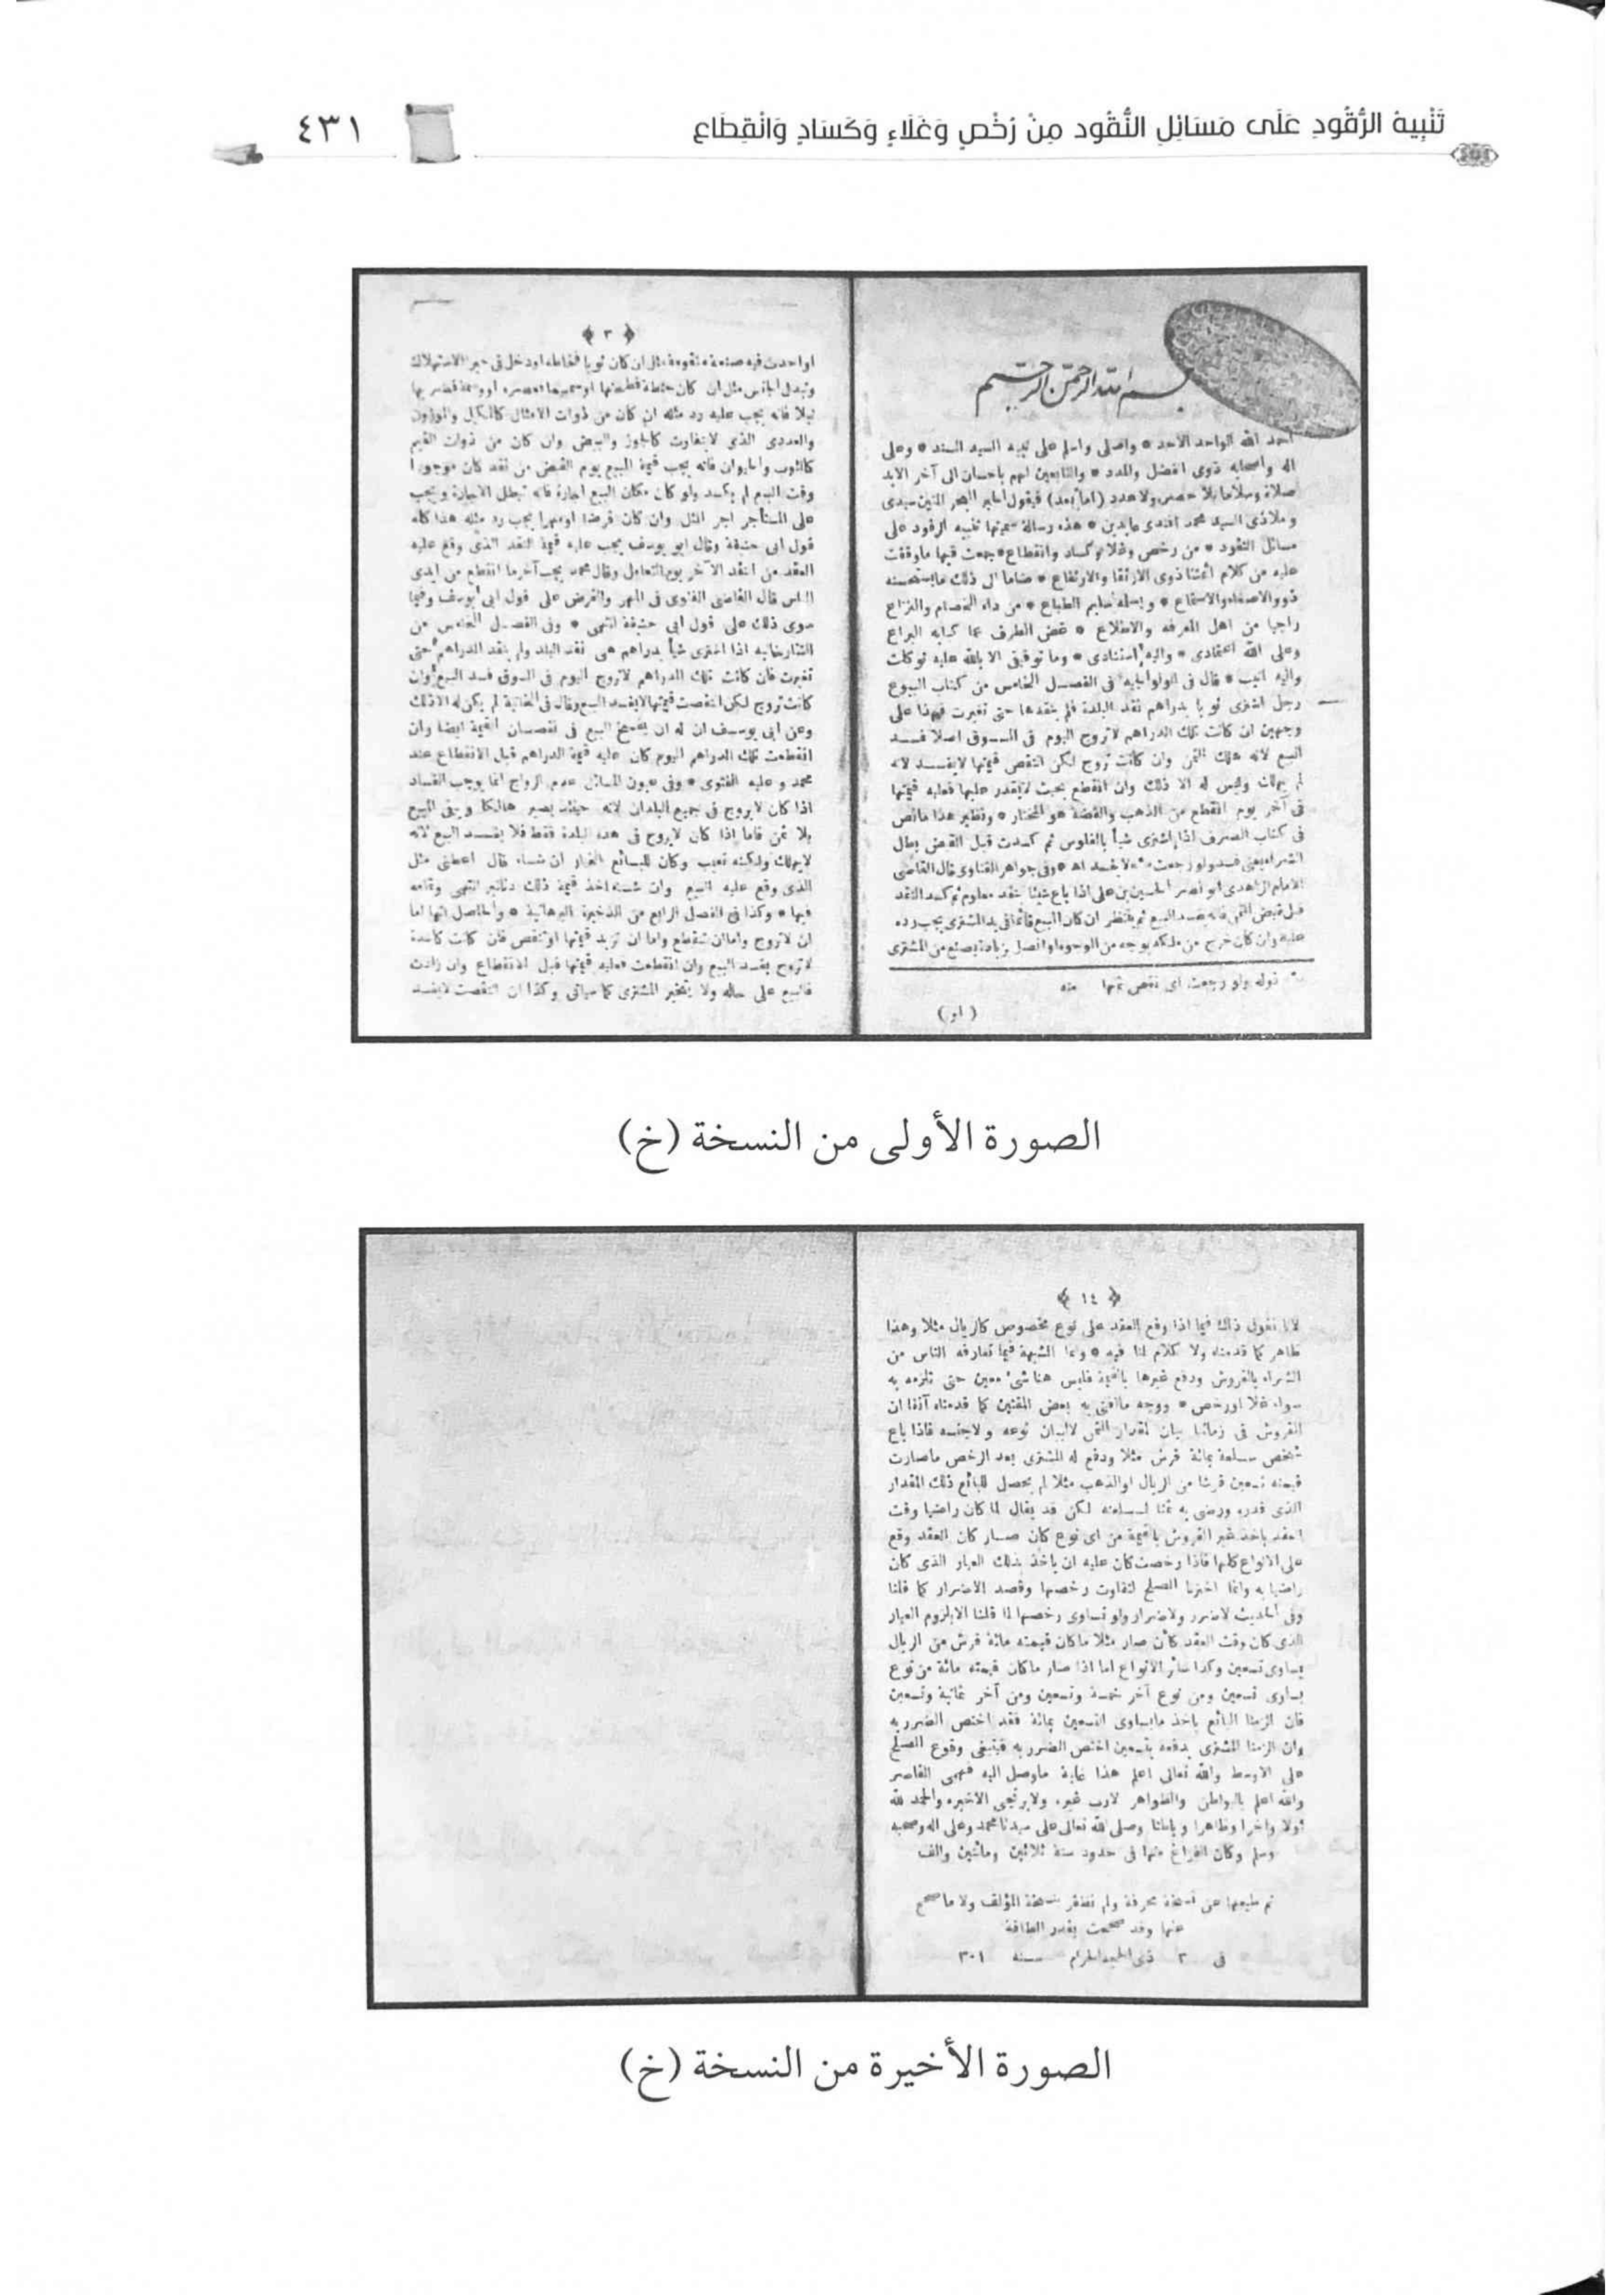 تَنْبِيهُ الرُّقُودِ عَلَى مَسَائِلِ النُّقُود مِنْ رُخْصٍ وَغَلَاءٍ وَكَسَادٍ وَانْقِطَاع
٤٣١
بسم الله الرحمن الرحيم
احمد الله الواحد الاحد * واصلى واسلم على نبيه السيد السند * وعلى
اله واصحابه ذوى الفضل والمدد * والتابعين لهم باحسان الى آخر الابد
صلاة وسلاما بلا حصر ولا عدد (اما بعد) فيقول
وملاذى السيد محمد افندى عابدين * هذه رسالة سميتها تنبيه الرقود على
مسائل النقود * من رخص وغلا وكساد وانقطاع * جمعت فيها ما وقفت
عليه من كلام ائمتنا ذوى الارتقا والارتفاع * ضاما الى ذلك ما يستحسنه
ذووا الاصغاء والاستماع * من داء الخصام والنزاع
راجيا من اهل المعرفه والاطلاع * غض الطرف عما كبابه اليراع
وعلى الله اعتمادى * واليه استنادى * وما توفيقى الا بالله عليه توكلت
واليه انيب * قال فى الولوالجيه فى الفصل الخامس من كتاب البيوع
رجل اشترى ثوبا بدراهم نقد البلدة فلم ينقدها حتى تغيرت فهذا على
وجهين ان كانت تلك الدراهم لا تروج اليوم فى السوق اصلا فسد
البيع لانه هلك الثمن وان كانت تروج لكن انتقص قيمتها لا يفسد لانه
لم يهلك وليس له الا ذلك وان انقطع بحيث لا يقدر عليها فعليه قيمتها
فى آخر يوم انقطع من الذهب والفضة هو المختار * ونظير هذا ما نص
فى كتاب الصرف اذا اشترى شيأ بالفلوس ثم كسدت قبل القبض بطل
الشراء يعنى فسد ولو رخصت لا يفسد اه * وفى جواهر الفتاوى قال القاضى
الامام الزاهدى ابو نصر الحسين بن على اذا باع شيئا بنقد معلوم ثم كسد النقد
قبل قبض الثمن فانه يفسد البيع ثم ينظر ان كان المبيع قائما فى يد المشترى يجب رده
عليه وان كان خرج من ملكه بوجه من الوجوه او اتصل بزيادة بصنع من المشترى
قوله ولو رخصت اى نقص ثمنها منه
(او)
﴿ ٣ ﴾
او احدث فيه صنعة متقومة مثل ان كان ثوبا فخاطه او دخل فى حيز الاستهلاك
وتبدل الجنس مثل ان كان حنطة فطحنها او سمسما فعصره او وسمة فضربها
نيلا فانه يجب عليه رد مثله ان كان من ذوات الامثال كالمكيل والموزون
والعددى الذى لا يتفاوت كالجوز والبيض وان كان من ذوات القيم
كالثوب والحيوان فانه يجب قيمة المبيع يوم القبض من نقد كان موجودا
وقت البيع لم يكسد ولو كان مكان البيع اجارة فانه تبطل الاجارة ويجب
على المستأجر اجر المثل وان كان قرضا او مهرا يجب رد مثله هذا كله
قول ابى حنيفة وقال ابو يوسف يجب عليه قيمة النقد الذى وقع عليه
العقد من النقد الآخر يوم التعامل وقال محمد يجب آخر ما انقطع من ايدى
الناس قال القاضى الفتوى فى المهر والقرض على قول ابى يوسف وفيما
سوى ذلك على قول ابى حنيفة انتهى * وفى الفصل الخامس من
التتارخانيه اذا اشترى شيأ بدراهم هى نقد البلد ولم ينقد الدراهم حتى
تغيرت فان كانت تلك الدراهم لا تروج اليوم فى السوق فسد البيع وان
كانت تروج لكن انتقصت قيمتها لا يفسد البيع وقال فى الخانية لم يكن له الا ذلك
وعن ابى يوسف ان له ان يفسخ البيع فى نقصان القيمة ايضا وان
انقطعت تلك الدراهم اليوم كان عليه قيمة الدراهم قبل الانقطاع عند
محمد وعليه الفتوى * وفى عيون المسائل عدم الرواج انما يوجب الفساد
اذا كان لا يروج فى جميع البلدان لانه حينئذ يصير هالكا ويبقى المبيع
بلا ثمن فاما إذا كان لا يروج فى هذه البلدة فقط فلا يفسد البيع لانه
لا يهلك ولكنه تعيب وكان للبائع الخيار ان شاء قال اعطنى مثل
الذى وقع عليه البيع وان شاء اخذ قيمة ذلك دنانير انتهى وتمامه
فيها * وكذا فى الفصل الرابع من الذخيرة البرهانية * والحاصل انها اما
ان لا تروج واما ان تنقطع واما ان تزيد قيمتها او تنقص فان كانت كاسدة
لا تروج يفسد البيع وان انقطعت فعليه قيمتها قبل الانقطاع وان زادت
فالبيع على حاله ولا يتخير المشترى كما سياتى وكذا ان انتقصت لا يفسد
الصورة الأولى من النسخة (خ)
﴿ ١٤ ﴾
لانا نقول ذاك فيما اذا وقع العقد على نوع مخصوص كالريال مثلا وهذا
ظاهر كما قدمناه ولا كلام لنا فيه * وانما الشبهة فيما تعارفه الناس من
الشراء بالقروش ودفع غيرها بالقيمة فليس هنا شئ معين حتى تلزمه به
سواء غلا او رخص * ووجه ما افتى به بعض المفتين كما قدمناه آنفا ان
القروش فى زماننا بيان لمقدار الثمن لا لبيان نوعه ولا جنسه فاذا باع
شخص سلعة بمائة قرش مثلا ودفع له المشترى بعد الرخص ما صارت
قيمته تسعين قرشا من الريال او الذهب مثلا لم يحصل للبائع ذلك المقدار
الذى قدره ورضى به ثمنا لسلعته لكن قد يقال لما كان راضيا وقت
العقد باخذ غير القروش بالقيمة من اى نوع كان صار كان العقد وقع
على الانواع كلها فاذا رخصت كان عليه ان ياخذ بذلك العيار الذى كان
راضيا به وانما اخترنا الصلح لتفاوت رخصها وقصد الاضرار كما قلنا
وفى الحديث لا ضرر ولا ضرار ولو تساوى رخصها لما قلنا الا بلزوم العيار
الذى كان وقت العقد كأن صار مثلا ما كان قيمته مائة قرش من الريال
يساوى تسعين وكذا سائر الانواع اما اذا صار ما كان قيمته مائة من نوع
يساوى تسعين ومن نوع آخر خمسة وتسعين ومن آخر ثمانية وتسعين
فان الزمنا البائع باخذ ما يساوى التسعين بمائة فقد اختص الضرر به
وان الزمنا المشترى بدفعه بتسعين اختص الضرر به فينبغى وقوع الصلح
على الاوسط والله تعالى اعلم هذا غاية ما وصل اليه فهمى القاصر
والله اعلم بالبواطن والظواهر لا رب غيره ولا يرتجى الا خيره والحمد لله
اولا واخرا وظاهرا وباطنا وصلى الله تعالى على سيدنا محمد وعلى اله وصحبه
وسلم وكان الفراغ منها فى حدود سنة ثلاثين ومائتين والف
تم طبعها عن نسخة محرفة ولم نظفر بنسخة المؤلف ولا ما صحح
عنها وقد صححت بقدر الطاقة
فى ٣ ذى الحجه الحرام سنه ٣٠١
الصورة الأخيرة من النسخة (خ)